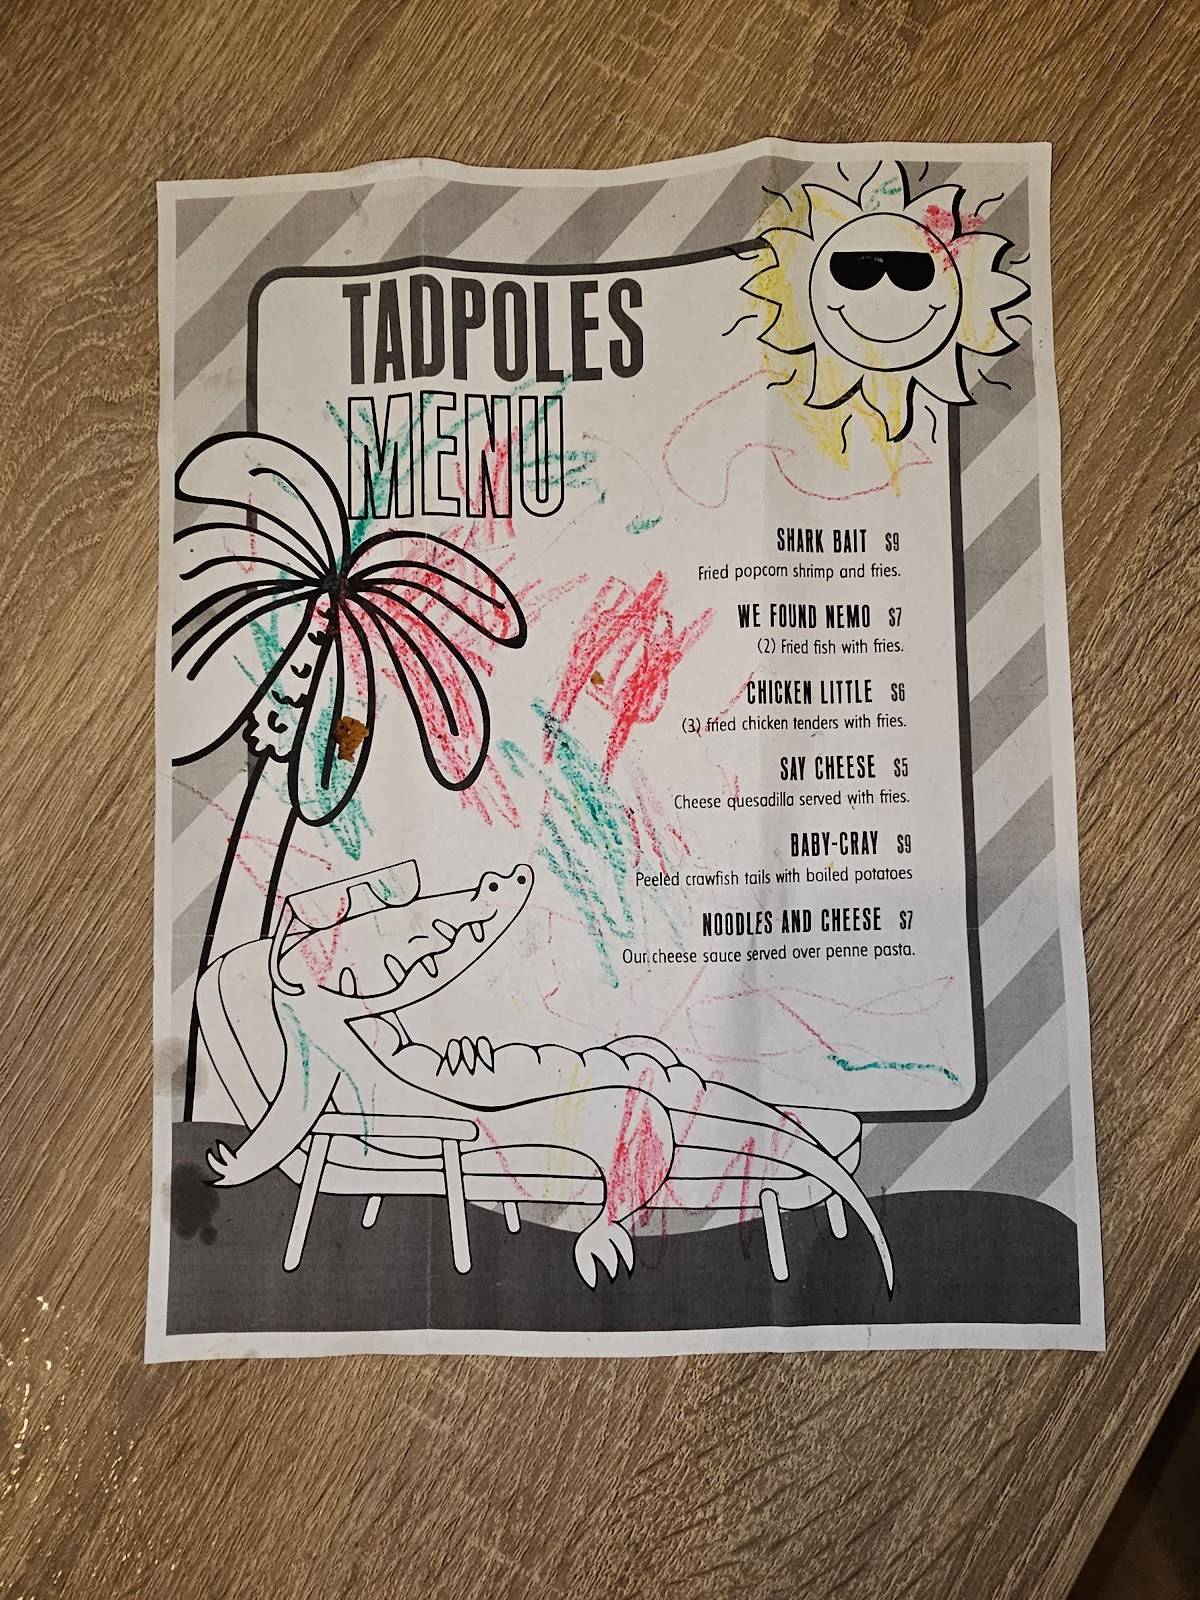 TADPOLES
MENU
SHARK BAIT $9
Fried popcorn shrimp and fries.
WE FOUND NEMO $7
(2) Fried fish with fries.
CHICKEN LITTLE $6
(3) fried chicken tenders with fries.
SAY CHEESE $5
Cheese quesadilla served with fries.
BABY-CRAY $9
Peeled crawfish tails with boiled potatoes
NOODLES AND CHEESE $7
Our cheese sauce served over penne pasta.